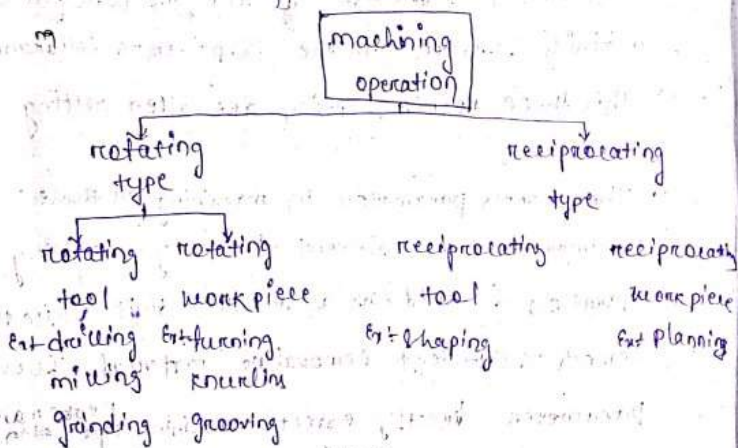 machining
operation
rotating
type
reciprocating
type
rotating
tool
Ex:- drilling
milling
grinding
rotating
workpiece
Ex:- turning
knurling
grooving
reciprocating
tool
Ex:- Shaping
reciprocating
workpiece
Ex:- Planning